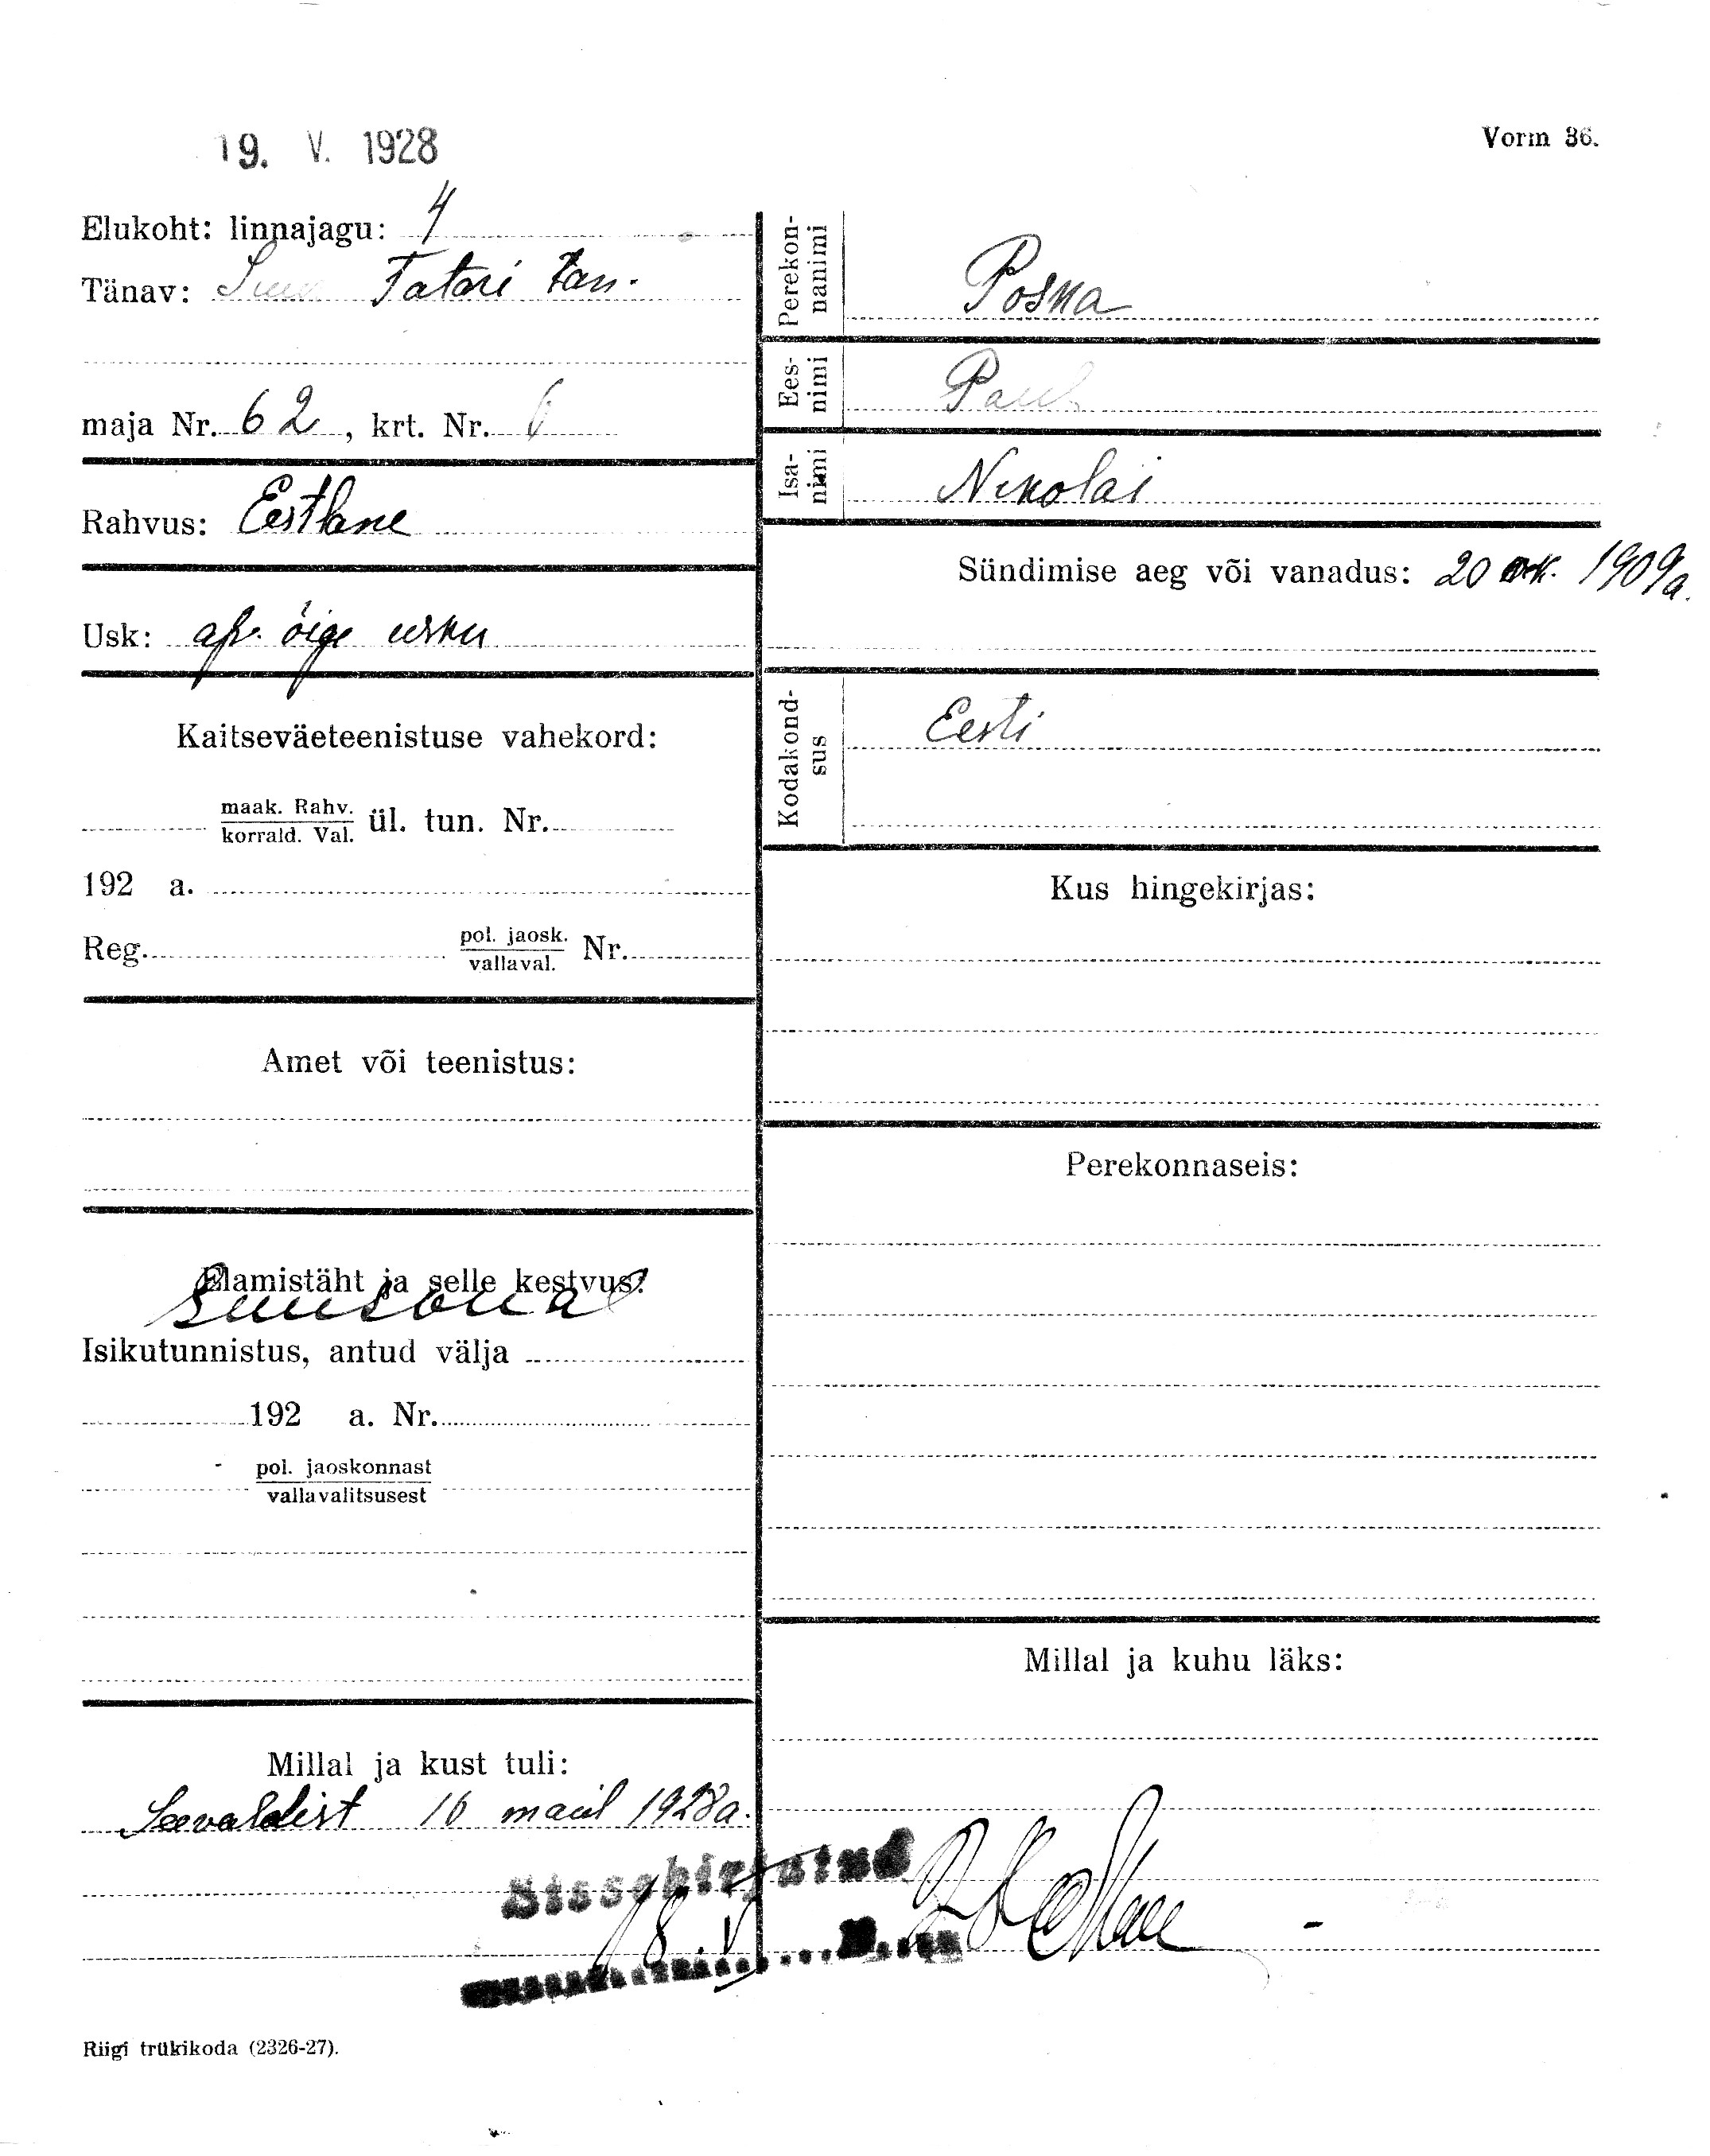 19. V. 1928
Vorm 36.
Elukoht: linnajagu: 4
Tänav: Suur Tatari tän.
maja Nr. 62, krt. Nr.
Rahvus: Eestlane
Usk: ap. õige usku
Kaitseväeteenistuse vahekord:
maak. Rahv.
korrald. Val. ül. tun. Nr.
192 a.
Reg. pol. jaosk. Nr.
vallaval.
Amet või teenistus:
Elamistäht ja selle kestvus:
Isikutunnistus, antud välja
192 a. Nr.
pol. jaoskonnast
vallavalitsusest
Millal ja kust tuli:
Seevaldist 16 mail 1928 a.
Perekon-
nanimi
Poska
Ees-
nimi
Paul
Isa-
nimi
Nikolai
Sündimise aeg või vanadus: 20 1909 a.
Kodakond-
sus
Eesti
Kus hingekirjas:
Perekonnaseis:
Millal ja kuhu läks:
Sissekirjutud
18. V
Riigi trükikoda (2326-27).